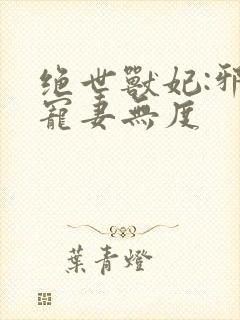 绝世獸妃:邪
寵妻無度
葉青燈